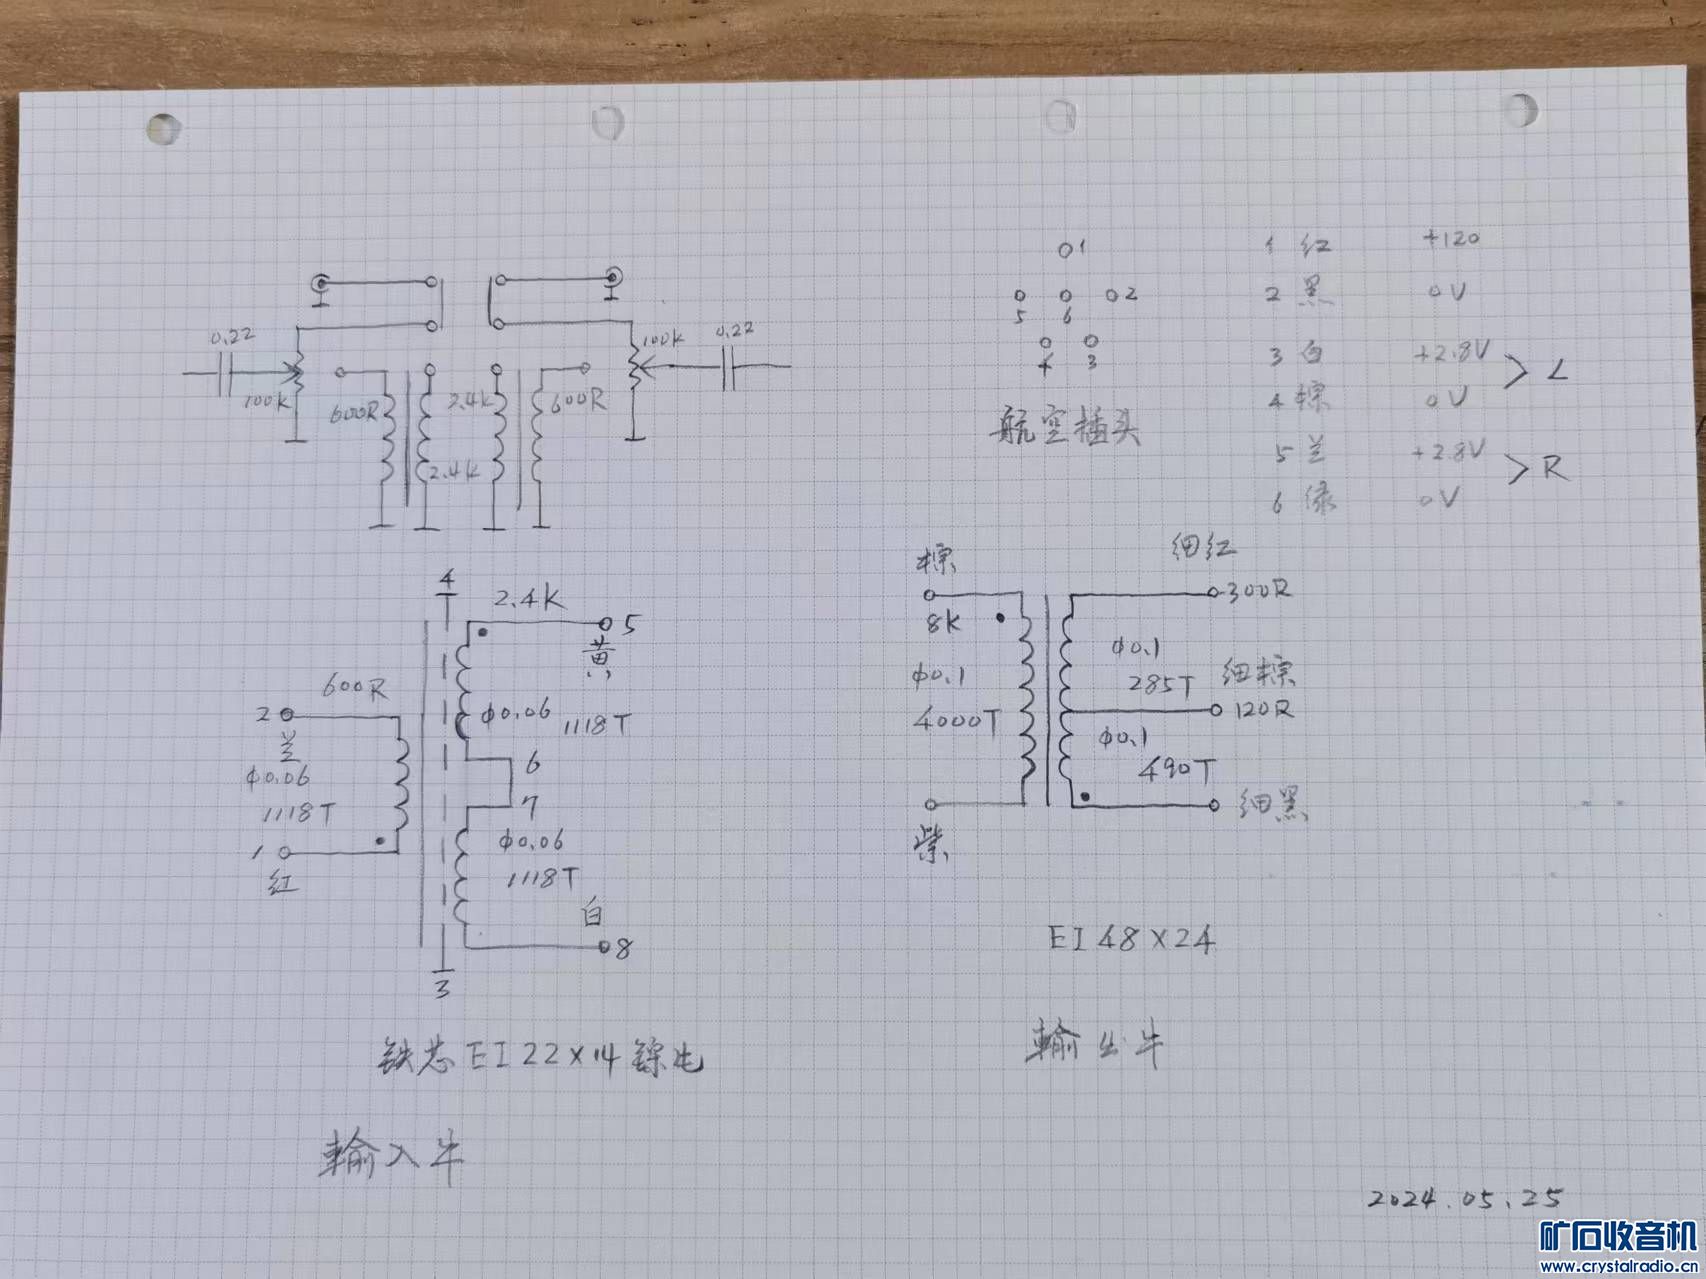 0.22
100K
600R
2.4K
2.4K
600R
100K
0.22
1
5 6 2
4 3
航空插头
1 红 +120
2 黑 0V
3 白 +2.8V
4 棕 0V
> L
5 兰 +2.8V
6 绿 0V
> R
4
2.4K
5
黄
600R
2
兰
φ0.06
1118T
1
红
φ0.06
1118T
6
7
φ0.06
1118T
白
8
3
铁芯 EI 22×14 镍
输入牛
棕
8K
φ0.1
4000T
紫
细红
300R
φ0.1
285T
细棕
120R
φ0.1
490T
细黑
EI 48×24
输出牛
2024.05.25
矿石收音机
www.crystalradio.cn